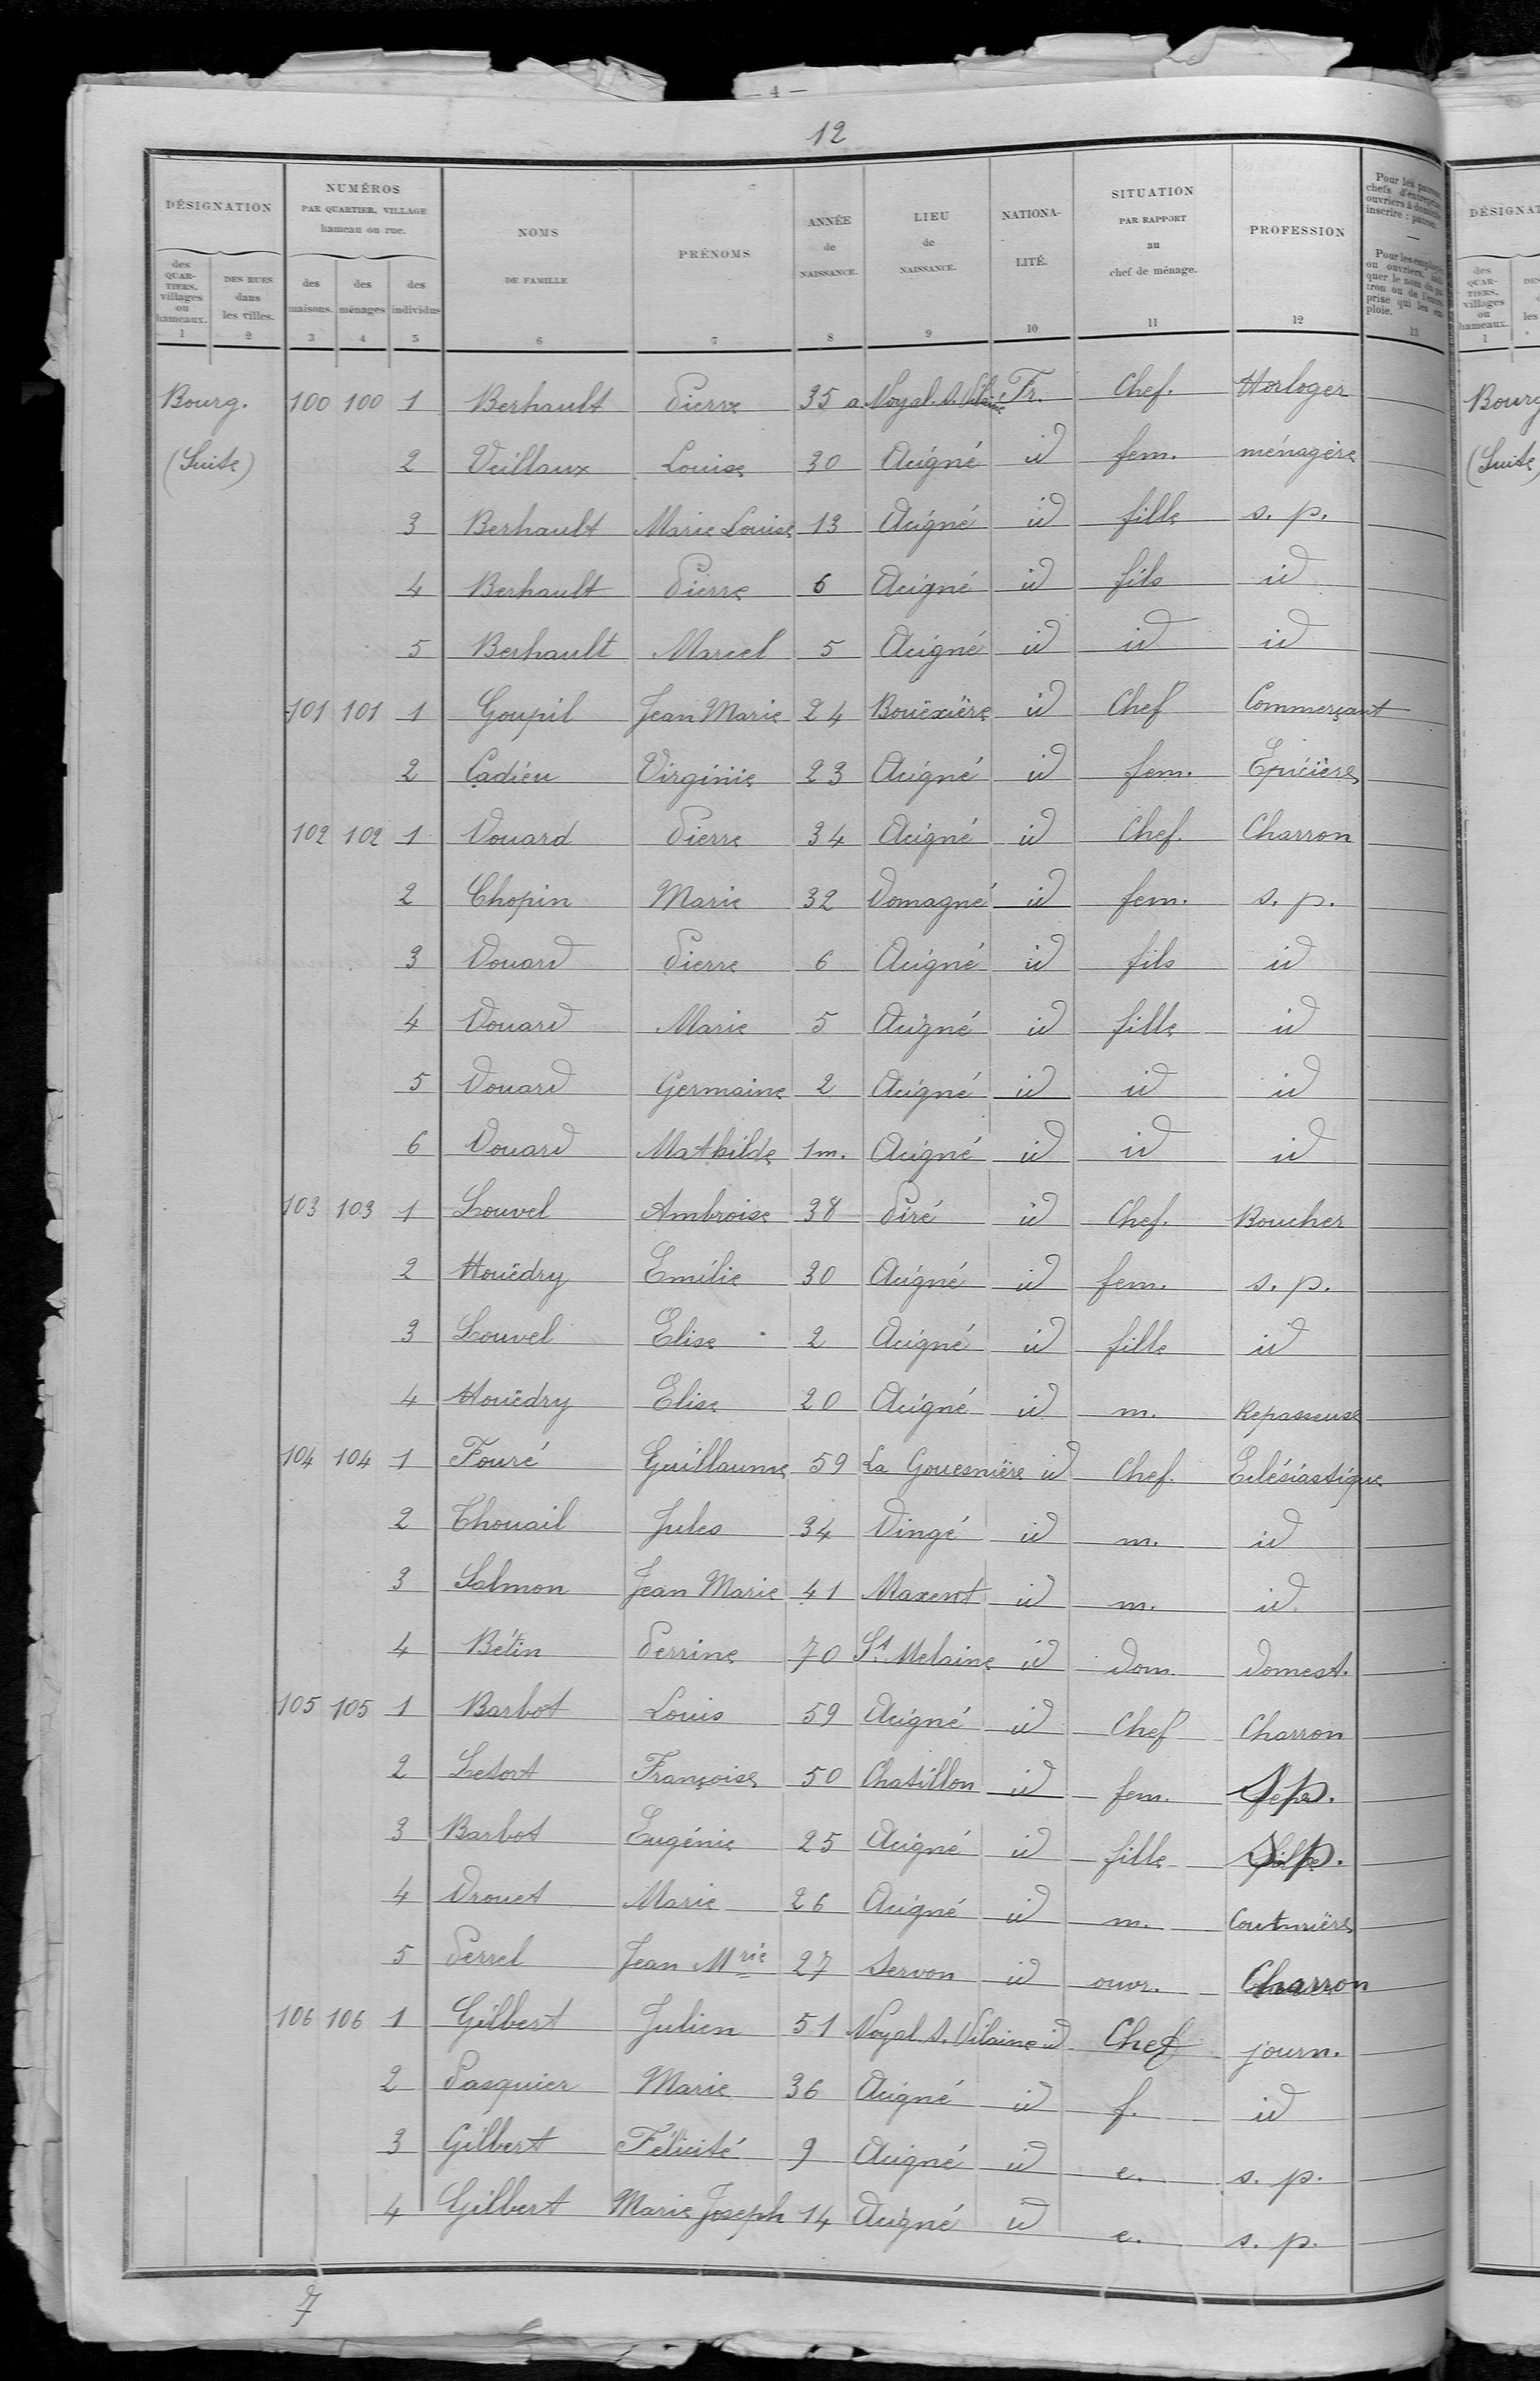 — 4 —
12
DÉSIGNATION
NUMÉROS
PAR QUARTIER, VILLAGE
hameau ou rue.
NOMS
DE FAMILLE
PRÉNOMS
ANNÉE
de
NAISSANCE.
LIEU
de
NAISSANCE.
NATIONA-
LITÉ.
SITUATION
PAR RAPPORT
au
chef de ménage.
PROFESSION
Pour les patrons
chefs d'entreprise
ouvriers à domicile
inscrire : patron.
—
Pour les employés
ou ouvriers,
quer le nom du pa
tron ou de l'entre
prise qui les em
ploie.
des
QUAR-
TIERS,
villages
ou
hameaux.
DES RUES
dans
les villes.
des
maisons.
des
ménages
des
individus
1 2 3 4 5 6 7 8 9 10 11 12 13
Bourg. 100 100 1 Berhault Pierre 35 a Noyal. s. Vilaine Fr. Chef. Horloger
(Suite) 2 Veillaux Louise 30 Acigné id fem. ménagère
3 Berhault Marie Louise 13 Acigné id fille s. p.
4 Berhault Pierre 6 Acigné id fils id
5 Berhault Marcel 5 Acigné id id id
101 101 1 Goupil Jean Marie 24 Bouëxière id Chef Commerçant
2 Cadieu Virginie 23 Acigné id fem. Epicière
102 102 1 Douard Pierre 34 Acigné id Chef. Charron
2 Chopin Marie 32 Domagné id fem. s. p.
3 Douard Pierre 6 Acigné id fils id
4 Douard Marie 5 Acigné id fille id
5 Douard Germaine 2 Acigné id id id
6 Douard Mathilde 1 m. Acigné id id id
103 103 1 Louvel Ambroise 38 Piré id Chef. Boucher
2 Houëdry Emilie 30 Acigné id fem. s. p.
3 Louvel Elise 2 Acigné id fille id
4 Houëdry Elise 20 Acigné id m. Repasseuse
104 104 1 Fouré Guillaume 59 La Gouesnière id Chef. Eclésiastique
2 Thouail Jules 34 Dingé id m. id
3 Salmon Jean Marie 41 Maxent id m. id
4 Bétin Perrine 70 St. Melaine id dom. domest.
105 105 1 Barbot Louis 59 Acigné id Chef Charron
2 Lesort Françoise 50 Chatillon id fem.
3 Barbot Eugénie 25 Acigné id fille
4 Drouet Marie 26 Acigné id m. Couturière
5 Perrel Jean Mrie 27 Servon id ouvr. Charron
106 106 1 Gilbert Julien 51 Noyal. s. Vilaine id Chef journ.
2 Pasquier Marie 36 Acigné id f. id
3 Gilbert Félicité 9 Acigné id e. s. p.
4 Gilbert Marie Joseph 14 Acigné id e. s. p.
7
DÉSIGNAT
des
QUAR-
TIERS,
villages
ou
hameaux.
1
DES
les
Bourg
(Suite)